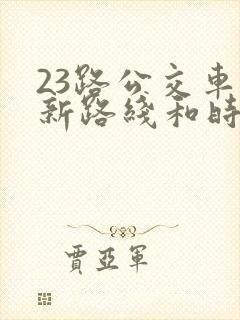 23路公交車
新路綫和時
賈亞軍